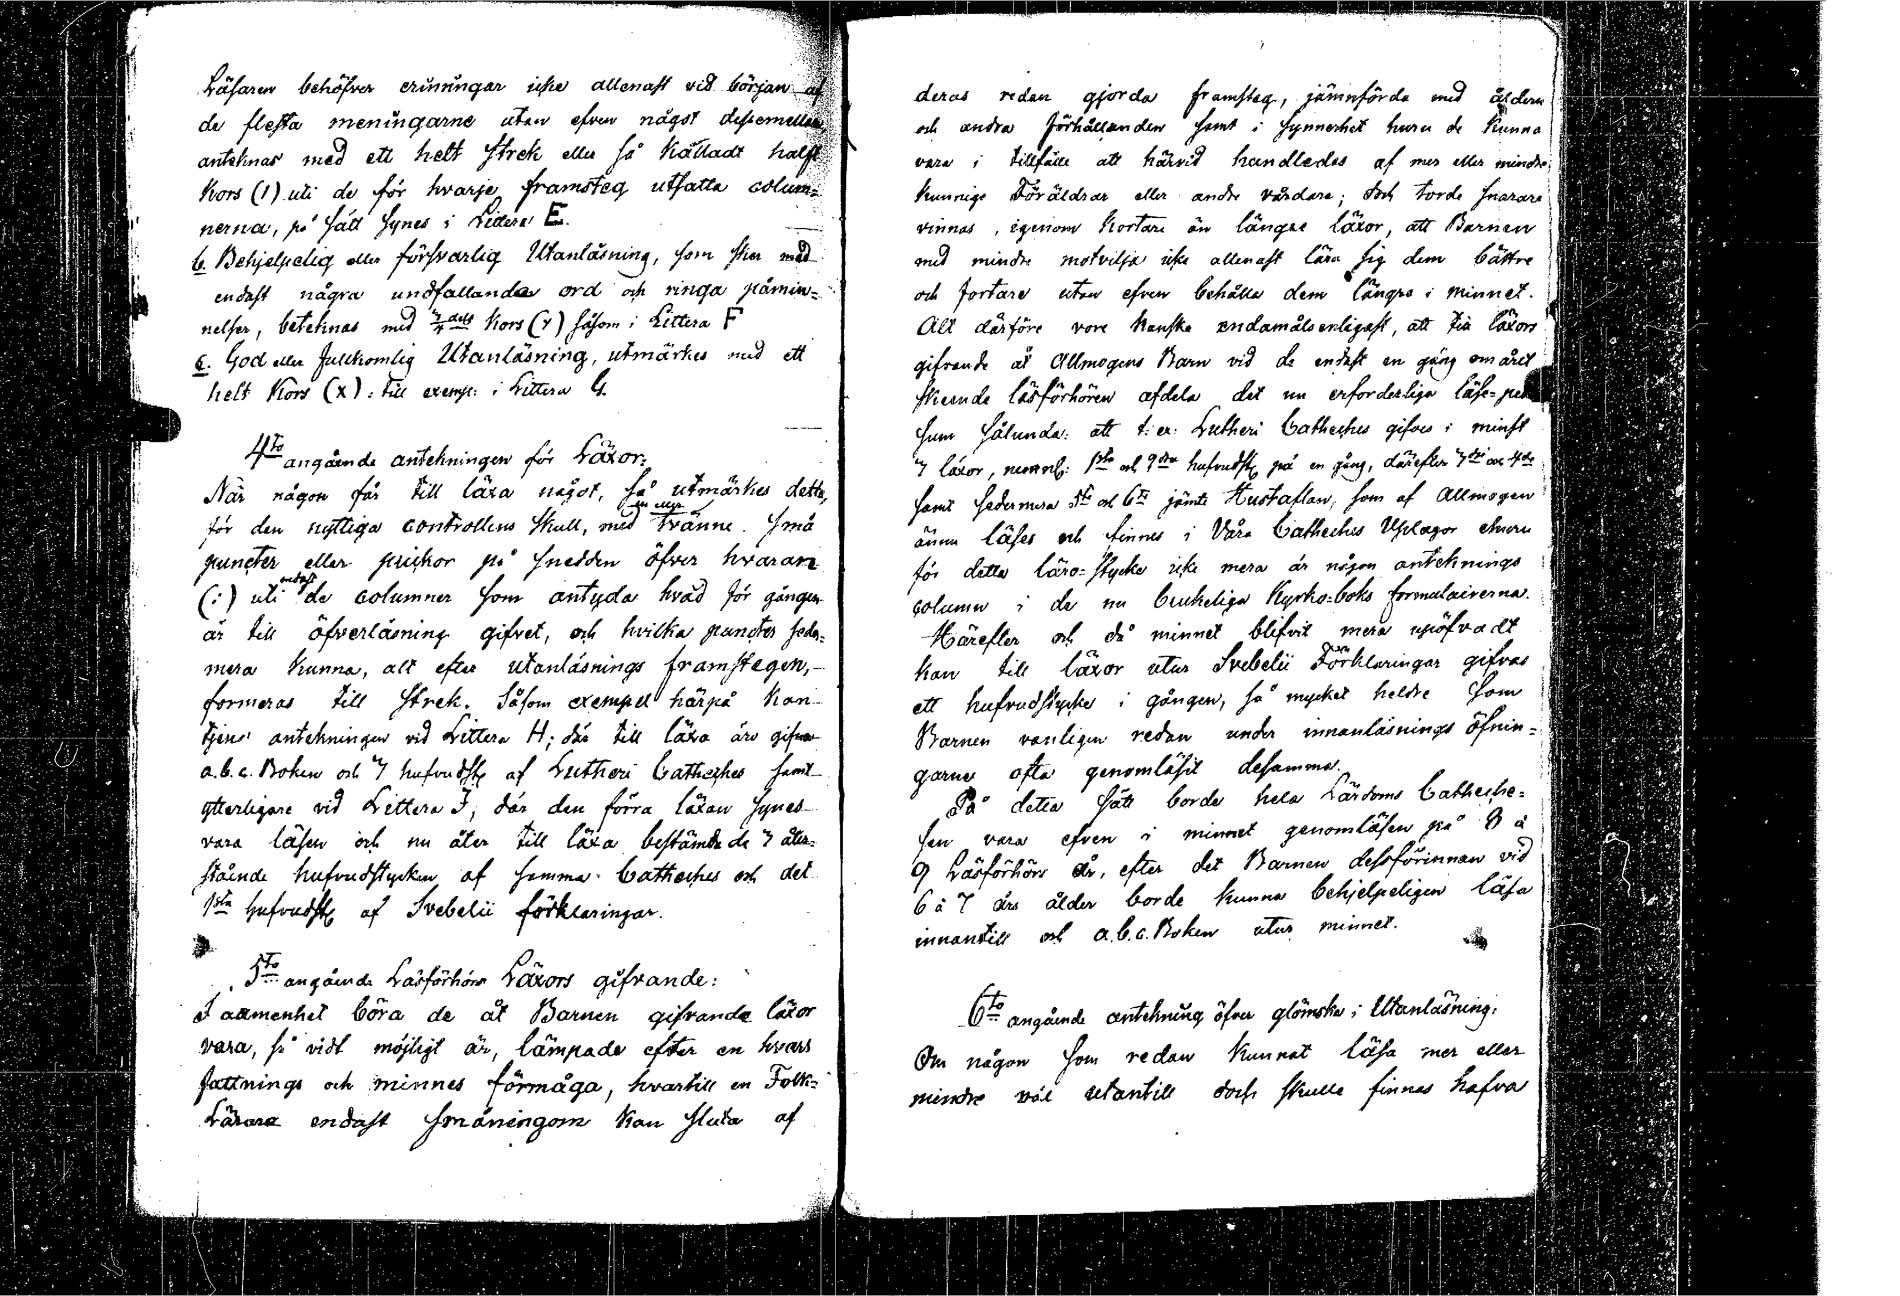 Läsaren behöfver erinringar icke allenast vid början af
de flesta meningarne utan efven någst dessemellan,
anteknas med ett helt strek eller så kalladt halft
Kors (1) uti de för hvarje framsteg utsatta colum=
nerna, på sätt synes i Littera E.
b. Behjelpelig eller försvarlig Utanläsning, som sker med
endast några undfallande ord och ringa påmin=
nelser, beteknas med 3/4 dels Kors (Y) såsom i Littera F
c. God eller fullkomlig Utanläsning, utmärkes med ett
helt Kors (x): till exempl: i Littera G.
4to angående antekningen för Läxor:
När någon får till läxa något, så utmärkes detta,
för den nyttiga controllens skull, med en eller tvänne små
puncter eller prickor på snedden öfver hvaran
(:) uti endast de columner som antyda hvad för gången
är till öfverläsning gifvet, och hvilka puncter seder=
mera kunna, alt efter utanläsnings framstegen,
formeras till strek. Såsom exempel härpå kan
tjena antekningen vid Littera H; där till läxa äro gifna
a.b.c. Boken och 3 hufvudst. af Lutheri Catheches samt
ytterligare vid Littera I, där den förra läxan synes
vara läsen och nu åter till läxa bestämde de 3 åter=
stående hufvudstycken af samma Catheches och det
1sta hufvudst. af Svebelii förklaringar.
5to angående Läsförhörs Läxors gifvande:
I allmenhet böra de åt Barnen gifvande läxor
vara, så vidt möjligt är, lämpade efter en hvars
fattnings och minnes förmåga, hvartill en Folk=
Lärare endast småningom kan sluta af
deras redan gjorda framsteg, jämnförda med åldern
och andra förhållanden samt i synnerhet huru de kunna
vara i tillfälle att härvid handledas af mer eller mindre
kunnige Föräldrar eller andre vårdare; doch torde snarare
vinnas, igenom kortare än längre läxor, att Barnen
med mindre motvilja icke allenast lära sig dem bättre
och fortare utan efven behålla dem längre i minnet.
Alt därföre vore kanske endamålsenligast, att till läxors
gifvande åt Allmogens Barn vid de endast en gång om året
skeende läsförhören afdela det nu erforderliga läse=pen
sum sålunda: att t: ex: Lutheri Catheches gifves i minst
3 läxor, nemnl: 1sta och 2dra hufvudst. på en gång, därefter 3die och 4de
samt sedermera 5te och 6te jämte Hustaflan, som af Allmogen
ännu läses och finnes i Våra Catheches Uplagor ehuru
för detta läro=stycke icke mera är någon anteknings
column i de nu brukeliga Kyrko=boks formulairerna.
Härefter och då minnet blifvit mera upöfvadt
kan till läxor utur Svebelii Förklaringar gifvas
ett hufvudstycke i gången, så mycket heldre som
Barnen vanligen redan under innanläsnings öfnin=
garne ofta genomläsit desamma.
På detta sätt borde hela Lärdoms Catheche=
sen vara efven i minnet genomläsen på 8 à
9 Läsförhör år, efter det Barnen dessförinnan vid
6 à 7 års ålder borde kunna behjelpeligen läsa
innantill och a.b.c. Boken utur minnet.
6to angående antekning öfver glömska i Utanläsning:
Om någon som redan kunnat läsa mer eller
mindre väl utantill doch skulle finnas hafva